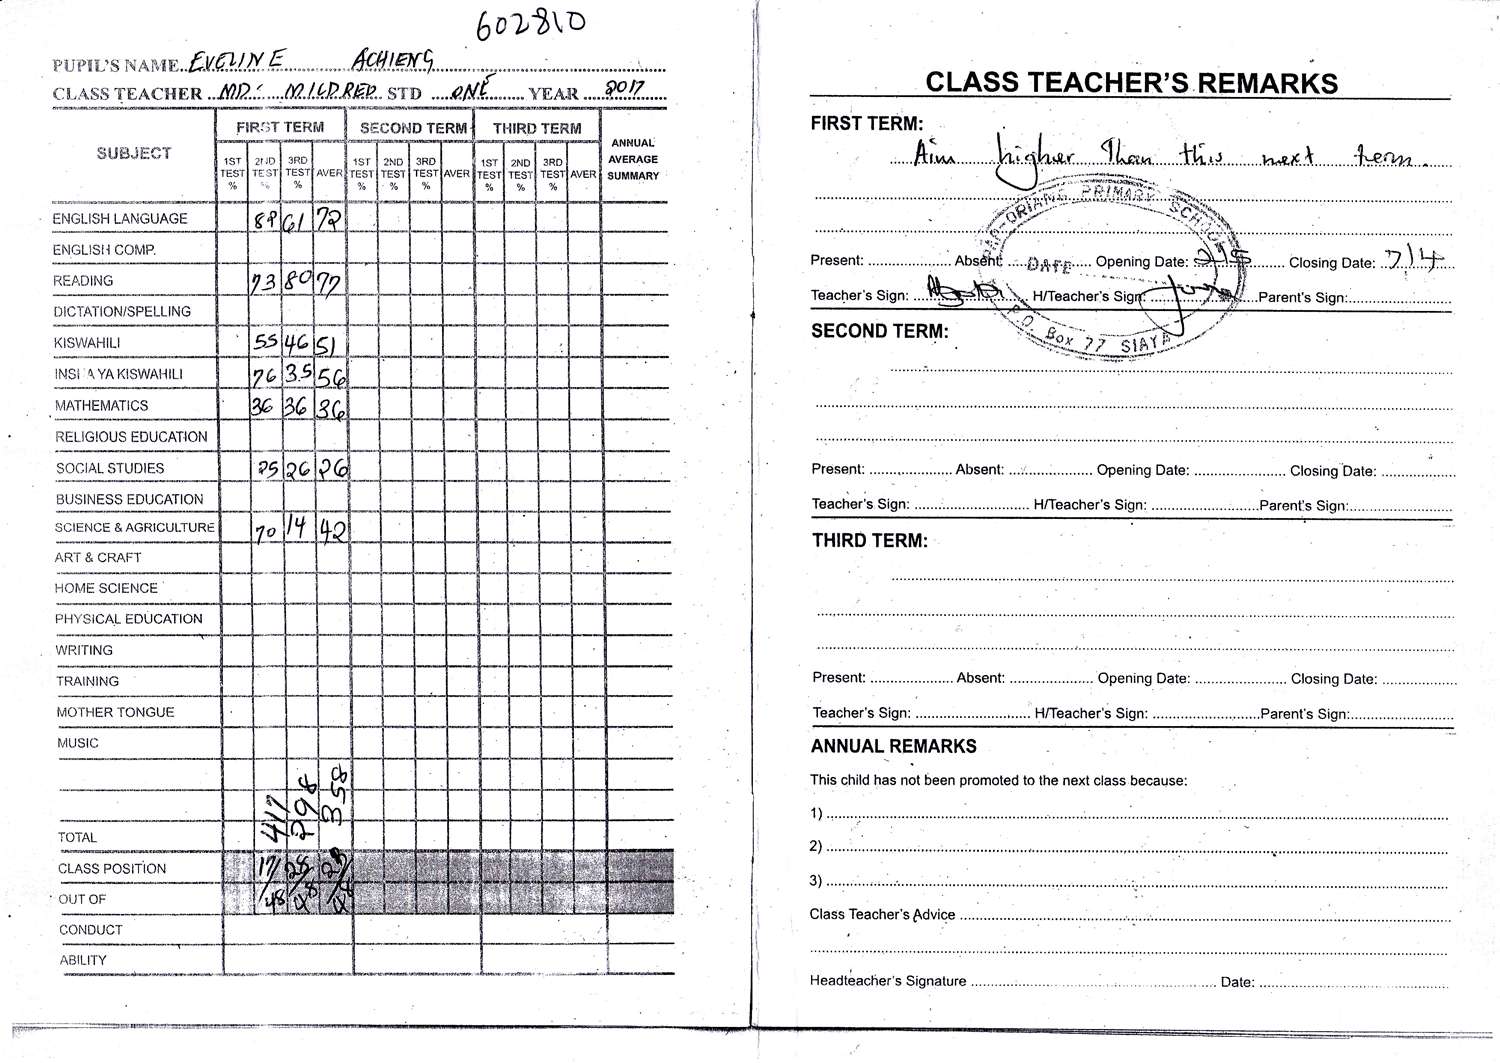 602810
PUPIL'S NAME EVELINE ACHIENG
CLASS TEACHER MD: MILDRED STD ONE YEAR 2017
SUBJECT FIRST TERM SECOND TERM THIRD TERM ANNUAL AVERAGE SUMMARY
1ST TEST % 2ND TEST % 3RD TEST % AVER 1ST TEST % 2ND TEST % 3RD TEST % AVER 1ST TEST % 2ND TEST % 3RD TEST % AVER
ENGLISH LANGUAGE 61 72
ENGLISH COMP.
READING 73 80 77
DICTATION/SPELLING
KISWAHILI 55 46 51
INSHA YA KISWAHILI 76 35 56
MATHEMATICS 36 36 36
RELIGIOUS EDUCATION
SOCIAL STUDIES 25 26 26
BUSINESS EDUCATION
SCIENCE & AGRICULTURE 70 14 42
ART & CRAFT
HOME SCIENCE
PHYSICAL EDUCATION
WRITING
TRAINING
MOTHER TONGUE
MUSIC
TOTAL 417 298 358
CLASS POSITION 17 28
OUT OF 48 48 48
CONDUCT
ABILITY
CLASS TEACHER'S REMARKS
FIRST TERM:
Aim higher Than this next term.
PRIMARY SCHOOL
Present: Absent: Opening Date: Closing Date: 7/4
DATE
Teacher's Sign: H/Teacher's Sign: Parent's Sign:
P.O. Box 77 SIAYA
SECOND TERM:
Present: Absent: Opening Date: Closing Date:
Teacher's Sign: H/Teacher's Sign: Parent's Sign:
THIRD TERM:
Present: Absent: Opening Date: Closing Date:
Teacher's Sign: H/Teacher's Sign: Parent's Sign:
ANNUAL REMARKS
This child has not been promoted to the next class because:
1)
2)
3)
Class Teacher's Advice
Headteacher's Signature Date: